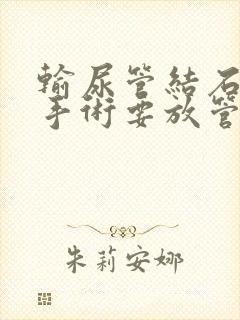 輸尿管結石
手術要放管
朱莉安娜